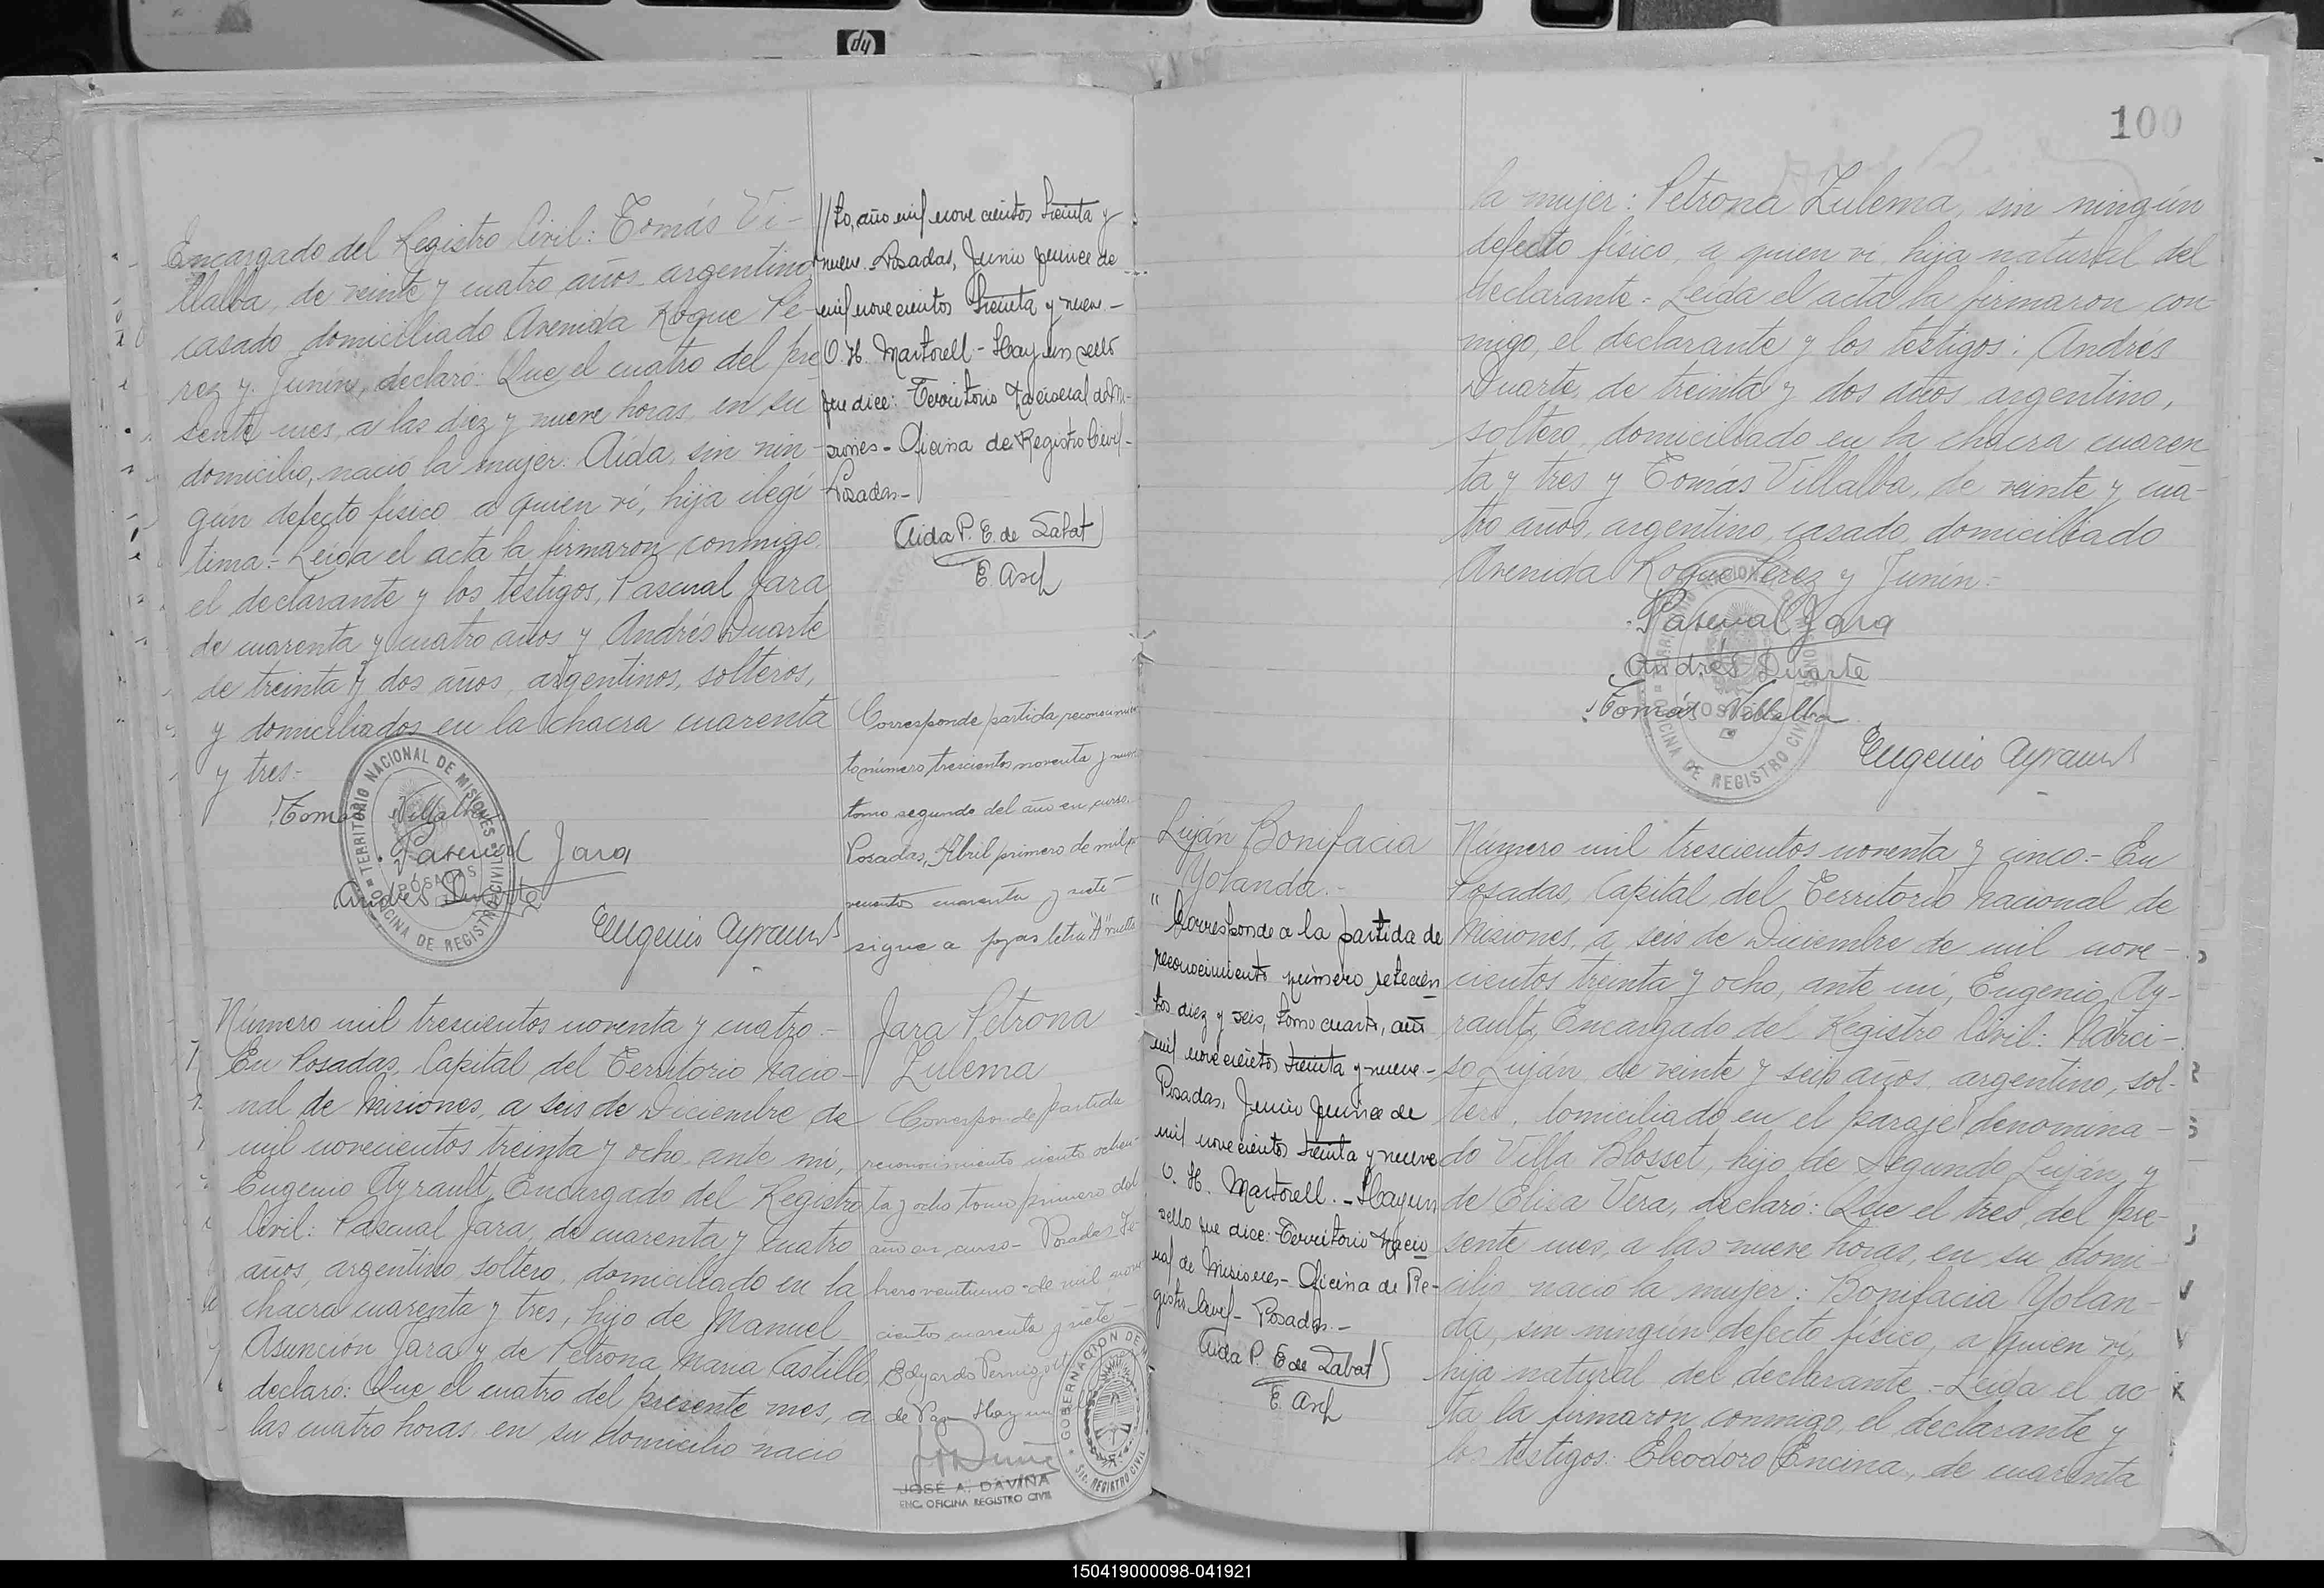 hp
Encargado del Registro Civil: Tomás Vi-
llalba, de veinte y cuatro años argentino,
casado, domiciliado Avenida Roque Pé-
rez y Junín, declaró: Que el cuatro del pre
sente mes, a las diez y nueve horas, en su
domicilio, nació la mujer: Aída, sin nin-
gún defecto físico a quien ví, hija ilegí
tima.- Leída el acta la firmaron conmigo,
el declarante y los testigos, Pascual Jara
de cuarenta y cuatro años y Andrés Duarte
de treinta y dos años, argentinos, solteros,
y domiciliados en la chacra cuarenta
y tres.-
Tomás Villalba
Pascual Jara
Andrés Duarte
Eugenio Ayrault
TERRITORIO NACIONAL DE MISIONES
POSADAS
OFICINA DE REGISTRO CIVIL
Número mil trescientos noventa y cuatro.-
En Posadas, Capital del Territorio Nacio-
nal de Misiones, a seis de Diciembre de
mil novecientos treinta y ocho, ante mí,
Eugenio Ayrault, Encargado del Registro
Civil: Pascual Jara, de cuarenta y cuatro
años, argentino, soltero, domiciliado en la
chacra cuarenta y tres, hijo de Manuel
Asunción Jara y de Petrona María Castillo,
declaró: Que el cuatro del presente mes, a
las cuatro horas, en su domicilio nació
//to, año mil nove cientos treinta y
nueve. Posadas, Junio quince de
mil nove cientos treinta y nueve-
O. H. Martorell - Hay un sello
que dice: Territorio Nacional de Mi-
siones - Oficina de Registro Civil -
Posadas-
Aida P. E. de Labat
E. Asef
Corresponde partida reconocimien
to número trescientos noventa y nueve
tomo segundo del año en curso.
Posadas, Abril primero de mil no
vecientos cuarenta y siete-
sigue a fojas letra "A" vuelta
Jara Petrona
Zulema
Corresponde partida
reconocimiento ciento ochen-
ta y ocho tomo primero del
año en curso - Posadas Fe-
brero veintiuno - de mil nove
cientos cuarenta y siete-
Edgardo
de Hay un
GOBERNACION DE
REGISTRO CIVIL
JOSÉ A. DAVIÑA
ENC. OFICINA REGISTRO CIVIL
100
la mujer: Petrona Zulema, sin ningún
defecto físico, a quien ví, hija natural del
declarante.- Leída el acta la firmaron con-
migo, el declarante y los testigos: Andrés
Duarte, de treinta y dos años, argentino,
soltero, domiciliado en la chacra cuaren
ta y tres y Tomás Villalba, de veinte y cua-
tro años, argentino, casado, domiciliado
Avenida Roque Pérez y Junín.-
Pascual Jara
Andrés Duarte
Tomás Villalba
Eugenio Ayrault
OFICINA DE REGISTRO CIVIL
Luján Bonifacia
Yolanda.-
"Corresponde a la partida de
reconocimiento número setecien
tos diez y seis, tomo cuarto, año
mil nove cientos treinta y nueve.-
Posadas, Junio quince de
mil nove cientos treinta y nueve
O. H. Martorell. - Hay un
sello que dice: Territorio Nacio
nal de Misiones - Oficina de Re-
gistro Civil - Posadas.-
Aida P. E de Labat
E. Asef
Número mil trescientos noventa y cinco.- En
Posadas, Capital del Territorio Nacional de
Misiones, a seis de Diciembre de mil nove-
cientos treinta y ocho, ante mí, Eugenio Ay-
rault, Encargado del Registro Civil: Narci-
so Luján, de veinte y seis años, argentino, sol-
tero, domiciliado en el paraje denomina-
do Villa Blosset, hijo de Segundo Luján y
de Elisa Vera, declaró: Que el tres del pre-
sente mes, a las nueve horas, en su domi-
cilio nació la mujer: Bonifacia Yolan-
da, sin ningún defecto físico, a quien ví,
hija natural del declarante.- Leída el ac-
ta la firmaron conmigo, el declarante y
los testigos: Eleodoro Encina, de cuarenta
150419000098-041921